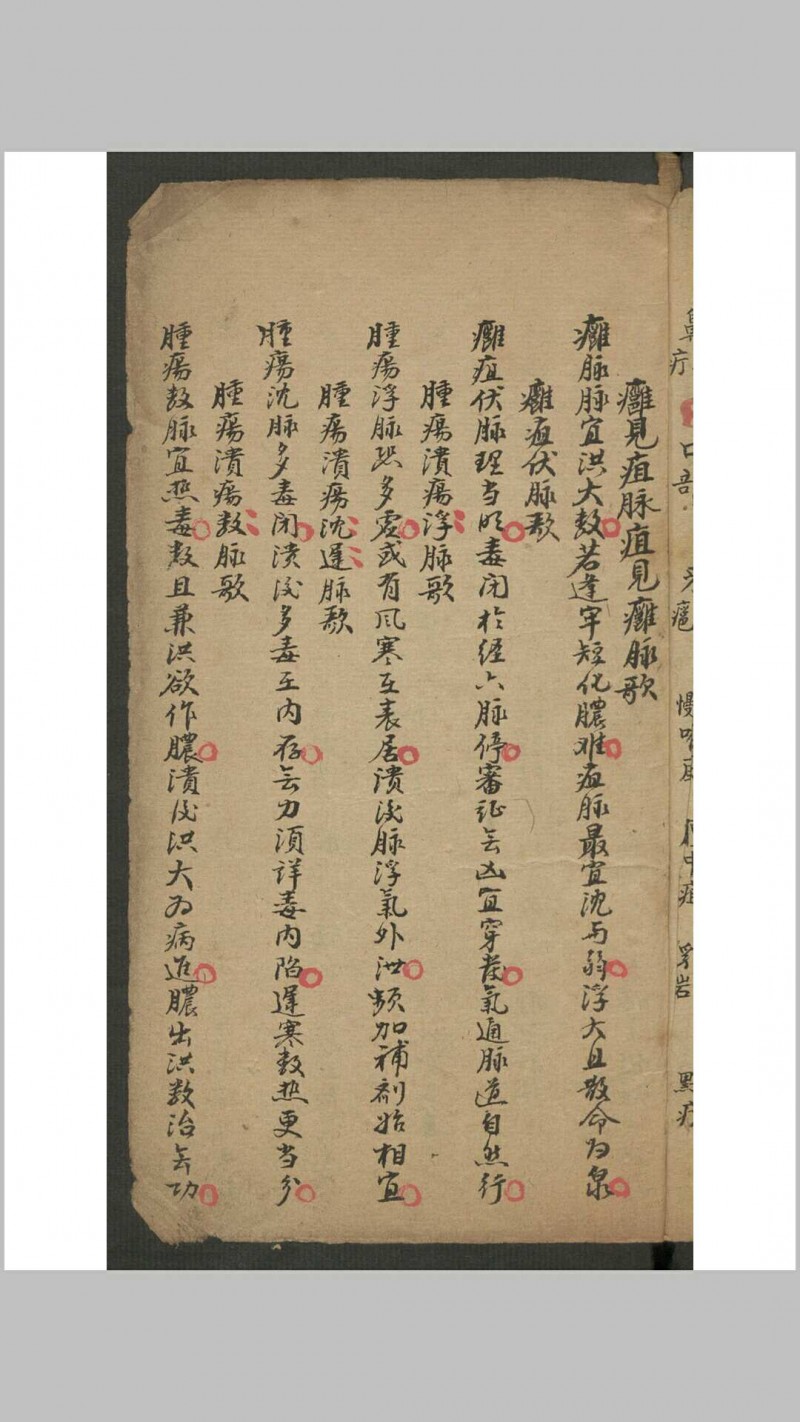 癰見疽脉疽見癰脉歌
癰脉脉宜洪大数若逢牢短化膿难疽脉最宜沈与弱浮大且散命为泉
癰疽伏脉歌
癰疽伏脉理当明毒闭於经六脉停審証无凶宜穿發氣通脉道自然行
腫瘍潰瘍浮脉歌
腫瘍浮脉恐多虚或有风寒在表居潰後脉浮氣外泄频加補剂始相宜
腫瘍潰瘍沈遲脉歌
腫瘍沈脉多毒闭潰後多毒在内存无力須詳毒内陷遲寒数热更当分
腫瘍潰瘍数脉歌
腫瘍数脉宜热毒数且兼洪欲作膿潰後洪大为病進膿出洪数治无功